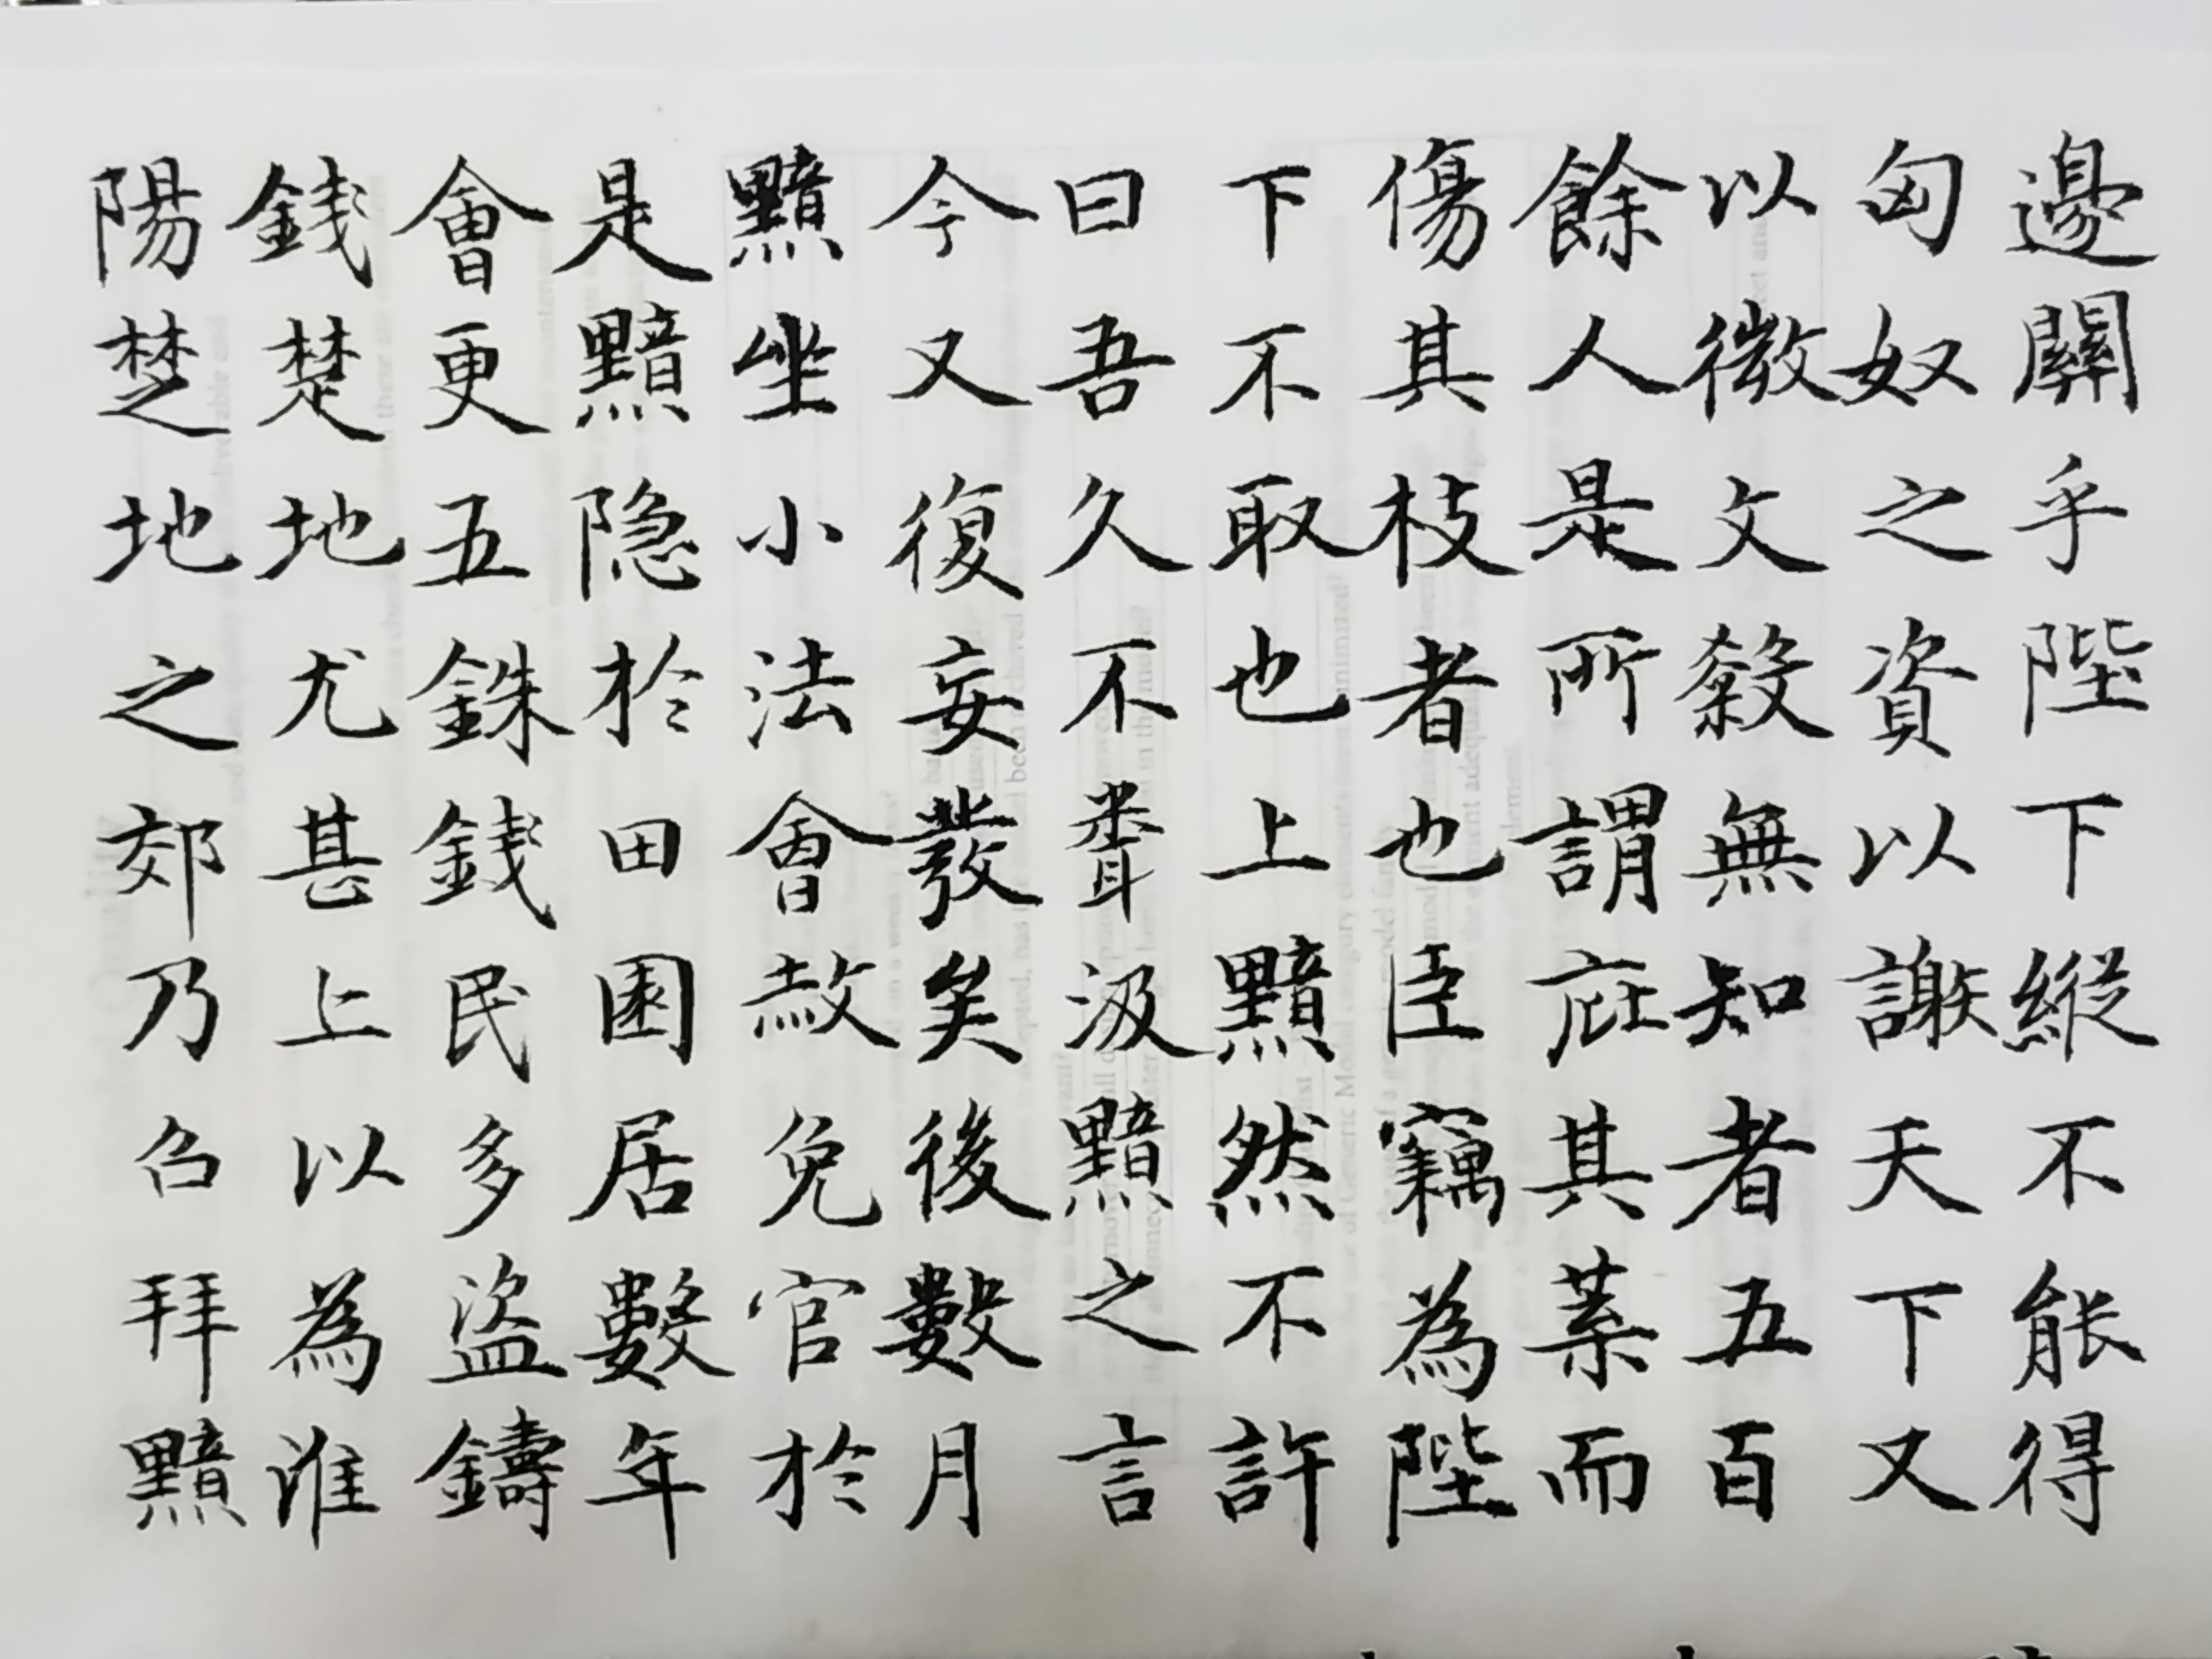 邊關乎陛下縱不能得
匈奴之資以謝天下又
以微文殺無知者五百
餘人是所謂庇其葉而
傷其枝者也臣竊為陛
下不取也上黯然不許
曰吾久不聞汲黯之言
今又復妄發矣後數月
黯坐小法會赦免官於
是黯隐於田園居數年
會更五銖錢民多盜鑄
錢楚地尤甚上以為淮
陽楚地之郊乃召拜黯